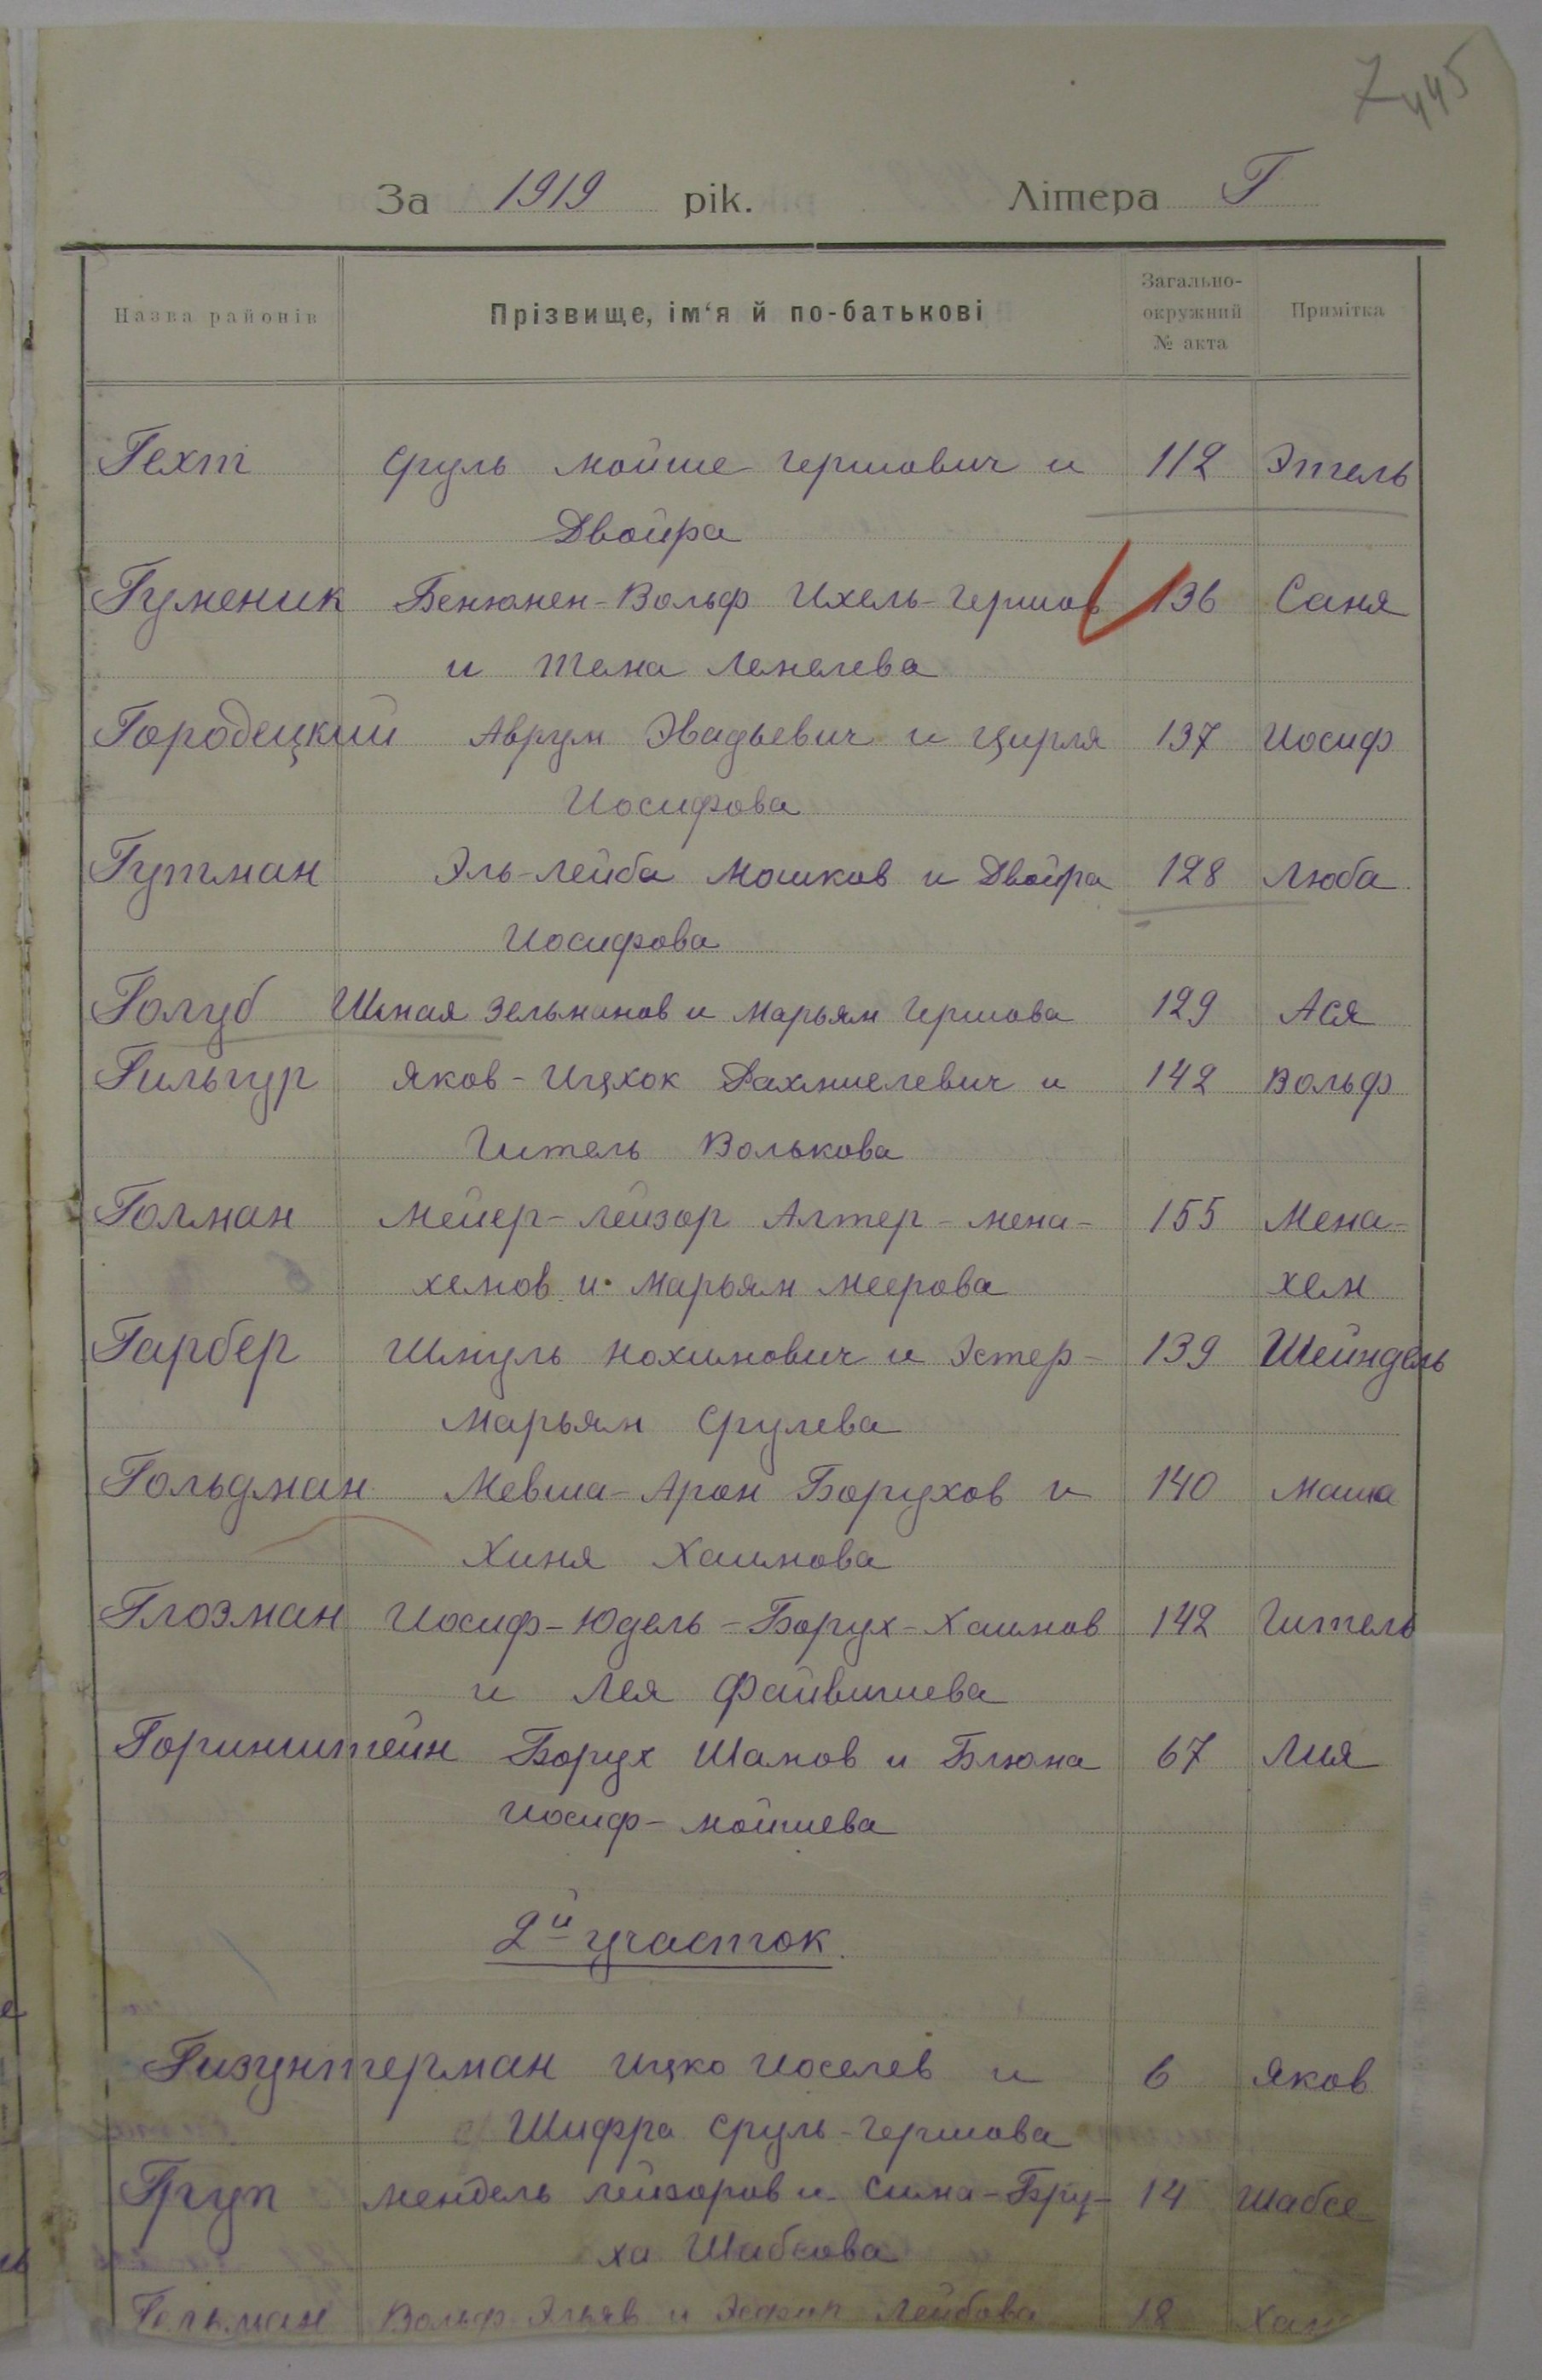 7 445
За 1919 рік. Літера Г
Назва районів Прізвище, ім'я й по-батькові Загально-окружний № акта Примітка
Гехт Сруль Мойше Гершович и 112 Этель
Двойра
Гуменик Бенюмен-Вольф Ихель-Гершов 136 Саня
и Тема
Городецкий Аврум Эвадьевич и Цирля 137 Иосиф
Иосифова
Гутман Эль-Лейба Мошков и Двойра 128 Люба
Иосифова
Голуб Шмая Зельманов и Марьям Гершова 129 Ася
Гильгур Яков-Ицхок Рахмиелевич и 142 Вольф
Гитель Волькова
Голман Мейер-Лейзор Алтер-Мена- 155 Мена-
хемов и Марьям Меерова хем
Гарбер Шмуль Нохимович и Эстер- 139 Шейндель
Марьям Срулева
Гольдман Мевша-Арон Борухов и 140 Маша
Хиня Хаимова
Глозман Иосиф-Юдель-Борух-Хаимов 142 Гитель
и Лея Файвишева
Горинштейн Борух Шамов и Блюма 67 Лия
Иосиф-Мойшева
2й участок.
Гизунтерман Ицко Иоселев и 6 Яков
Шифра Сруль-Гершова
Груп Мендель Лейзоров и Сима-Бру- 14 Шабсе
ха Шабсова
Гельман Вольф Эльяв и Лейбова 18